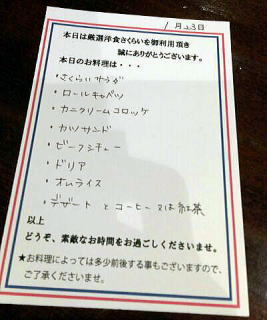 1月23日
本日は厳選洋食さくらいを御利用頂き
誠にありがとうございます。
本日のお料理は・・・
・さくらいサラダ
・ロールキャベツ
・カニクリームコロッケ
・カツサンド
・ビーフシチュー
・ドリア
・オムライス
・デザートとコーヒー又は紅茶
以上
どうぞ、素敵なお時間をお過ごしくださいませ。
★お料理によっては多少前後する事もございますので、
ご了承くださいませ。